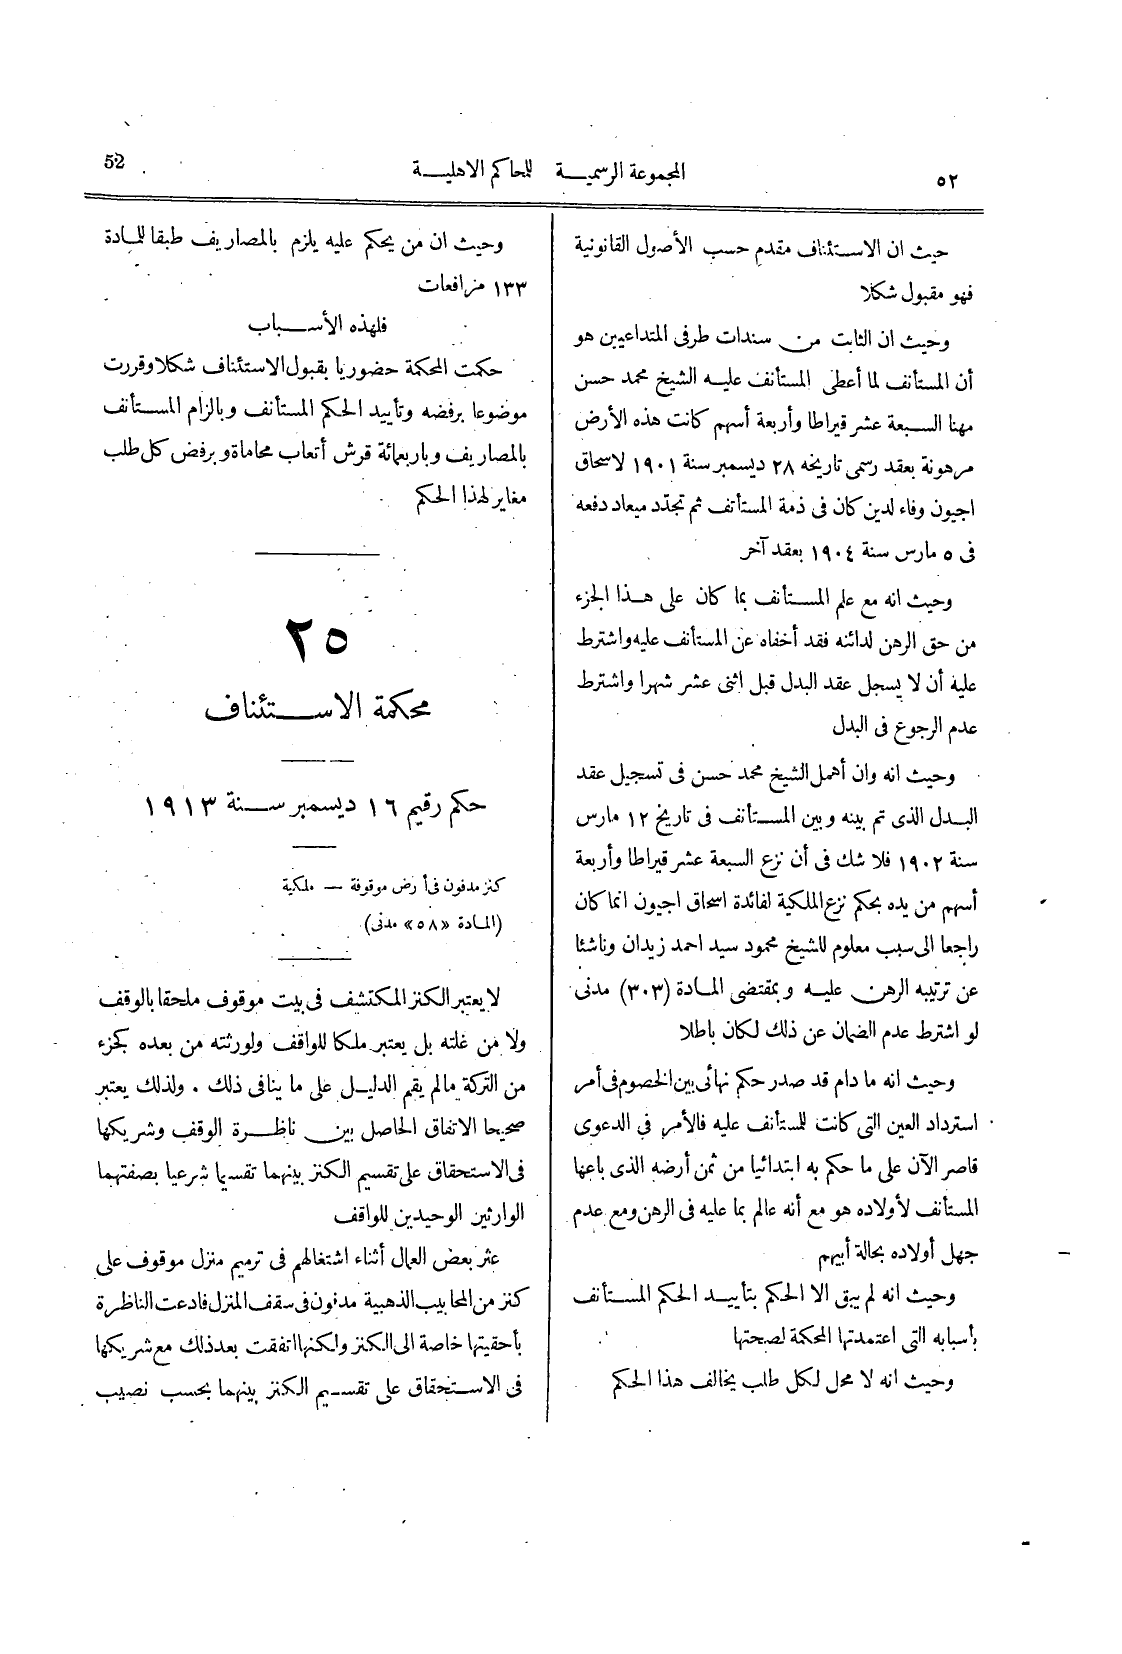 ٥٢
المجموعة الرسمية للمحاكم الاهلية
52
حيث ان الاستئناف مقدم حسب الأصول القانونية
فهو مقبول شكلا
وحيث ان الثابت من سندات طرفى المتداعيين هو
أن المستأنف لما أعطى المستأنف عليه الشيخ محمد حسن
مهنا السبعة عشر قيراطا وأربعة أسهم كانت هذه الأرض
مرهونة بعقد رسمى تاريخه ٢٨ ديسمبر سنة ١٩٠١ لاسحاق
اجيون وفاء لدين كان فى ذمة المستأنف ثم تجدّد ميعاد دفعه
فى ٥ مارس سنة ١٩٠٤ بعقد آخر
وحيث انه مع علم المستأنف بما كان على هذا الجزء
من حق الرهن لدائنه فقد أخفاه عن المستأنف عليه واشترط
عليه أن لا يسجل عقد البدل قبل اثنى عشر شهرا واشترط
عدم الرجوع فى البدل
وحيث انه وان أهمل الشيخ محمد حسن فى تسجيل عقد
البدل الذى تم بينه وبين المستأنف فى تاريخ ١٢ مارس
سنة ١٩٠٢ فلا شك فى أن نزع السبعة عشر قيراطا وأربعة
أسهم من يده بحكم نزع الملكية لفائدة اسحاق اجيون انما كان
راجعا الى سبب معلوم للشيخ محمود سيد احمد زيدان وناشئا
عن ترتيبه الرهن عليه وبمقتضى المادة (٣٠٣) مدنى
لو اشترط عدم الضمان عن ذلك لكان باطلا
وحيث انه ما دام قد صدر حكم نهائى بين الخصوم فى أمر
استرداد العين التى كانت للمستأنف عليه فالأمر فى الدعوى
قاصر الآن على ما حكم به ابتدائيا من ثمن أرضه الذى باعها
المستأنف لأولاده هو مع أنه عالم بما عليه فى الرهن ومع عدم
جهل أولاده بحالة أبيهم
وحيث انه لم يبق الا الحكم بتأييد الحكم المستأنف
بأسبابه التى اعتمدتها المحكمة لصحتها
وحيث انه لا محل لكل طلب يخالف هذا الحكم
وحيث ان من يحكم عليه يلزم بالمصاريف طبقا للمادة
١٣٣ مرافعات
فلهذه الأسباب
حكمت المحكمة حضوريا بقبول الاستئناف شكلا وقررت
موضوعا برفضه وتأييد الحكم المستأنف وبالزام المستأنف
بالمصاريف وباربعمائة قرش أتعاب محاماة وبرفض كل طلب
مغاير لهذا الحكم
٢٥
محكمة الاستئناف
حكم رقيم ١٦ ديسمبر سنة ١٩١٣
كنز مدفون فى أرض موقوفة — ملكية
(المادة «٥٨» مدنى)
لا يعتبر الكنز المكتشف فى بيت موقوف ملحقا بالوقف
ولا من غلته بل يعتبر ملكا للواقف ولورثته من بعده بجزء
من التركة مالم يقم الدليل على ما ينافى ذلك . ولذلك يعتبر
صحيحا الاتفاق الحاصل بين ناظرة الوقف وشريكها
فى الاستحقاق على تقسيم الكنز بينهما تقسيما شرعيا بصفتهما
الوارثين الوحيدين للواقف
عثر بعض العمال أثناء اشتغالهم فى ترميم منزل موقوف على
كنز من المحابيب الذهبية مدفون فى سقف المنزل فادعت الناظرة
بأحقيتها خاصة الى الكنز ولكنها اتفقت بعد ذلك مع شريكها
فى الاستحقاق على تقسيم الكنز بينهما بحسب نصيب